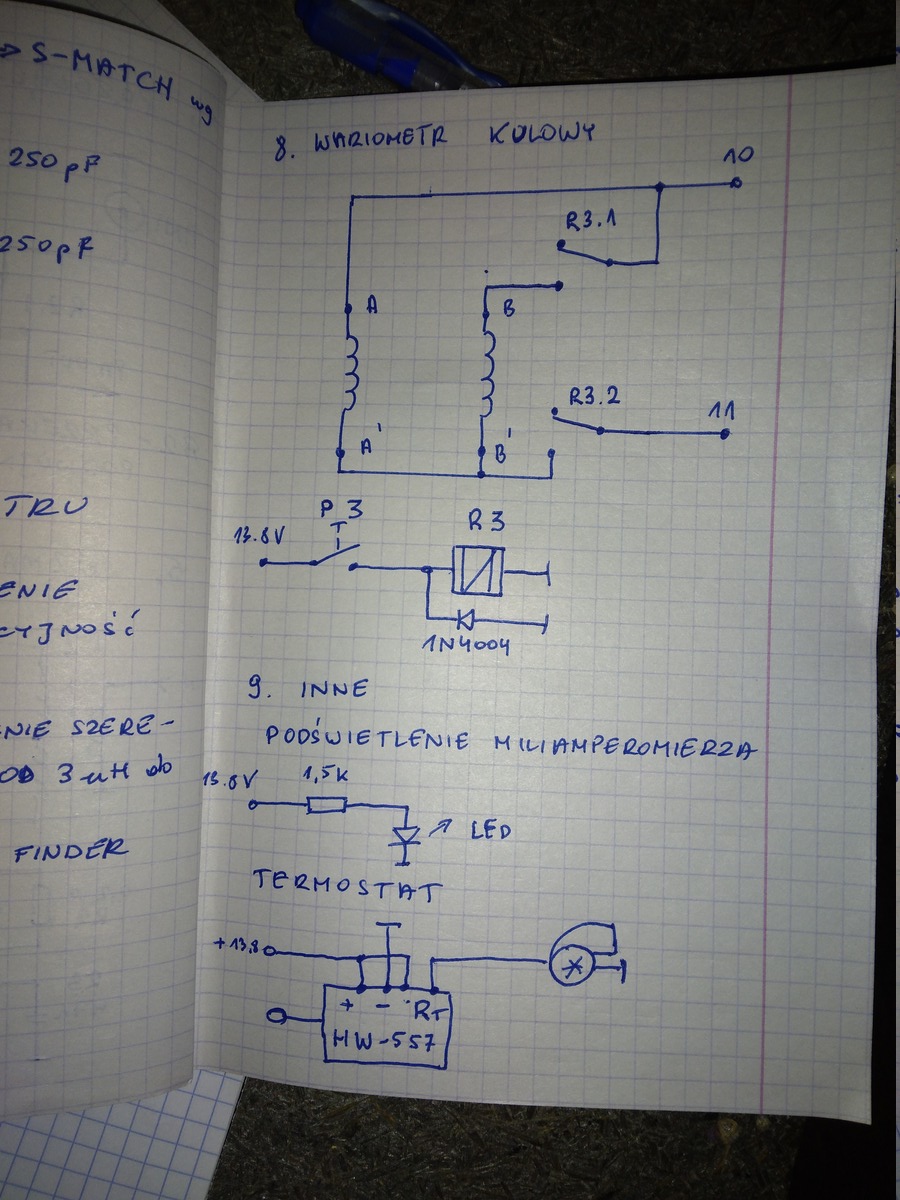 ⇒ S-MATCH wg
250 pF
250 pF
TRU
ENIE
CYJNOŚĆ
ENIE SZERE-
OD 3 uH do
FINDER
8. WARIOMETR KULOWY
10
R3.1
A
B
R3.2
11
A'
B'
P3
R3
13.8V
1N4004
9. INNE
PODŚWIETLENIE MILIAMPEROMIERZA
13.8V
1,5K
LED
TERMOSTAT
+13.8
+ - RT
HW-557